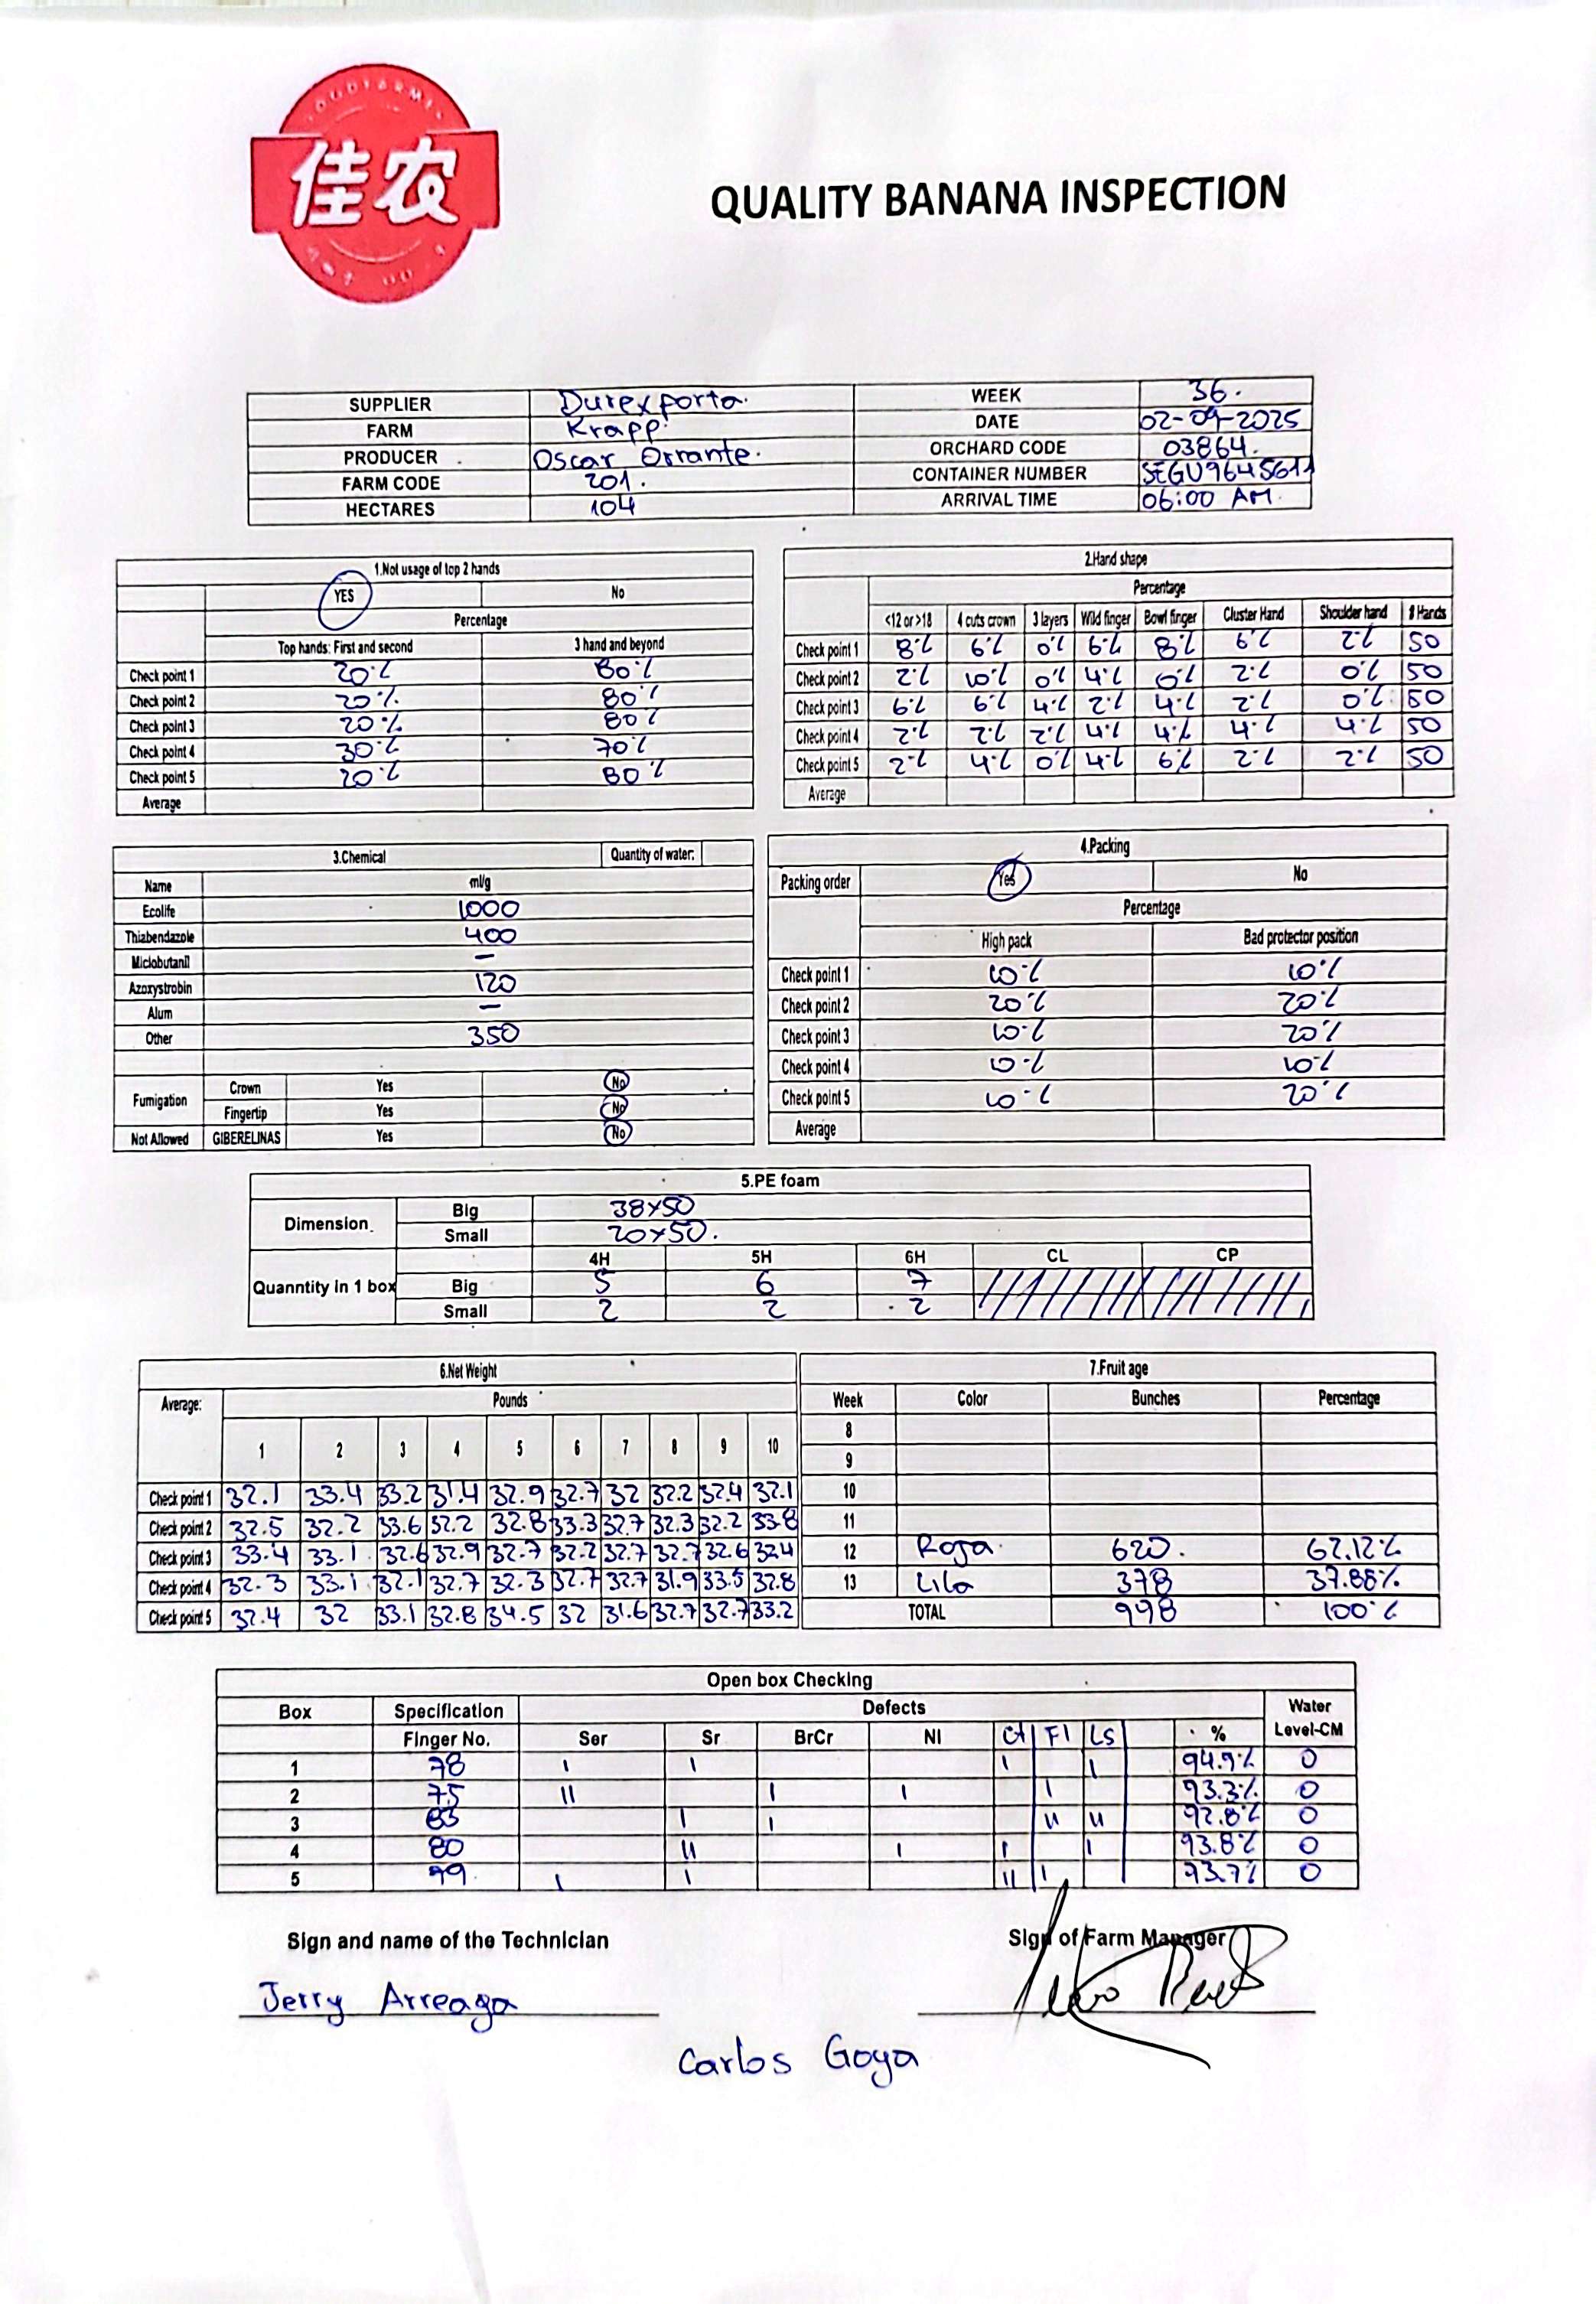 GOODFARMER
佳农
QUALITY BANANA INSPECTION
SUPPLIER Durexporta. WEEK 36.
FARM Krapp. DATE 02-09-2025
PRODUCER Oscar Orrante. ORCHARD CODE 03864.
FARM CODE 201. CONTAINER NUMBER SEGU9645611
HECTARES 104 ARRIVAL TIME 06:00 AM.
1.Not usage of top 2 hands
YES No
Percentage
Top hands: First and second 3 hand and beyond
Check point 1 20% 80%
Check point 2 20% 80%
Check point 3 20% 80%
Check point 4 30% 70%
Check point 5 20% 80%
Average
2.Hand shape
Percentage
<12 or >18 4 cuts crown 3 layers Wild finger Bowl finger Cluster Hand Shoulder hand # Hands
Check point 1 8% 6% 0% 6% 8% 6% 2% 50
Check point 2 2% 10% 0% 4% 0% 2% 0% 50
Check point 3 6% 6% 4% 2% 4% 2% 0% 50
Check point 4 2% 2% 2% 4% 4% 4% 4% 50
Check point 5 2% 4% 0% 4% 6% 2% 2% 50
Average
3.Chemical Quantity of water:
Name ml/g
Ecolife 1000
Thiabendazole 400
Miclobutanil –
Azoxystrobin 120
Alum –
Other 350
Fumigation Crown Yes No
Fingertip Yes No
Not Allowed GIBERELINAS Yes No
4.Packing
Packing order Yes No
Percentage
High pack Bad protector position
Check point 1 10% 10%
Check point 2 20% 20%
Check point 3 10% 20%
Check point 4 10% 10%
Check point 5 10% 20%
Average
5.PE foam
Dimension Big 38x50
Small 20x50.
4H 5H 6H CL CP
Quanntity in 1 box Big 5 6 7
Small 2 2 2
6.Net Weight
Average: Pounds
1 2 3 4 5 6 7 8 9 10
Check point 1 32.1 33.4 33.2 31.4 32.9 32.7 32 32.2 32.4 32.1
Check point 2 32.5 32.2 33.6 32.2 32.8 33.3 32.7 32.3 32.2 33.8
Check point 3 33.4 33.1 32.6 32.9 32.7 32.2 32.7 32.7 32.6 32.4
Check point 4 32.3 33.1 32.1 32.7 32.3 32.7 32.7 31.9 33.5 32.8
Check point 5 32.4 32 33.1 32.8 34.5 32 31.6 32.7 32.7 33.2
7.Fruit age
Week Color Bunches Percentage
8
9
10
11
12 Roja. 620. 62.12%
13 Lila 378 37.88%
TOTAL 998 100%
Open box Checking
Box Specification Defects Water
Finger No. Ser Sr BrCr NI Ct FI LS % Level-CM
1 78 I I I I 94.9% 0
2 75 II I I I 93.3% 0
3 83 I I II II 92.8% 0
4 80 II I I I 93.8% 0
5 79. I I II I 93.7% 0
Sign and name of the Technician Sign of Farm Manager
Jerry Arreaga
Carlos Goya